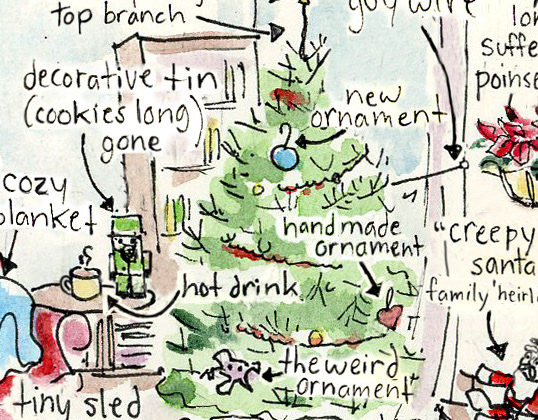 top branch
guy wire
suffe
poinse
decorative tin
(cookies long)
gone
new
ornament
cozy
blanket
handmade
ornament
"creepy
santa
family heirl
hot drink
"the weird
ornament"
tiny sled